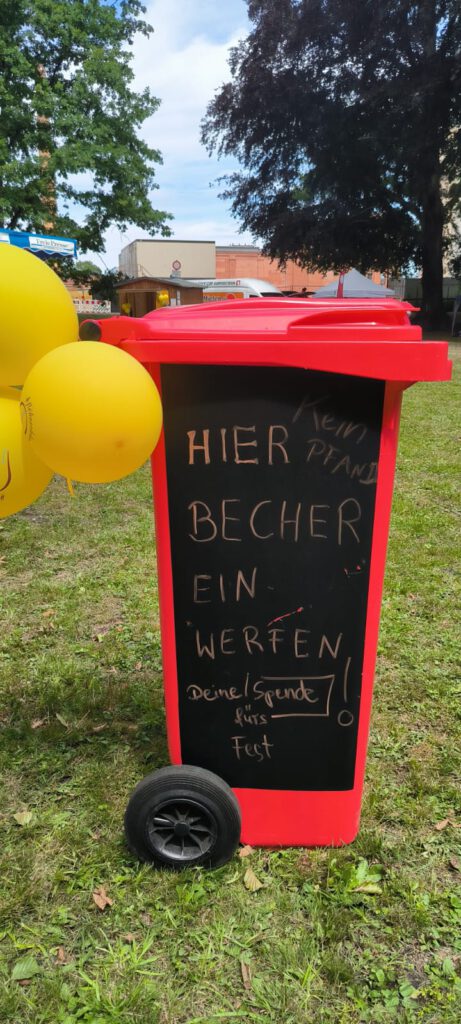 Kein
PFAND
HIER
BECHER
EIN
WERFEN !
Deine/Spende
fürs
Fest